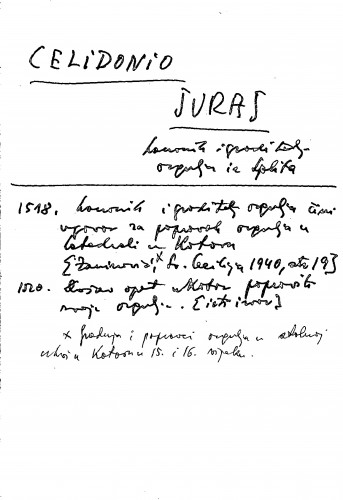 CELIDONIO
JURAJ
kanonik i graditelj
orgulja iz Splita
1518. kanonik i graditelj orgulja čini
ugovor za popravak orgulja u
katedrali u Kotoru
[ˣ Sv. Cecilija 1940, str. 19]
1520. opet u Kotor
svoje orgulje. [isti izvor]
x Gradnja i popravci orgulja u stolnoj
crkvi u Kotoru u 15. i 16. vijeku.